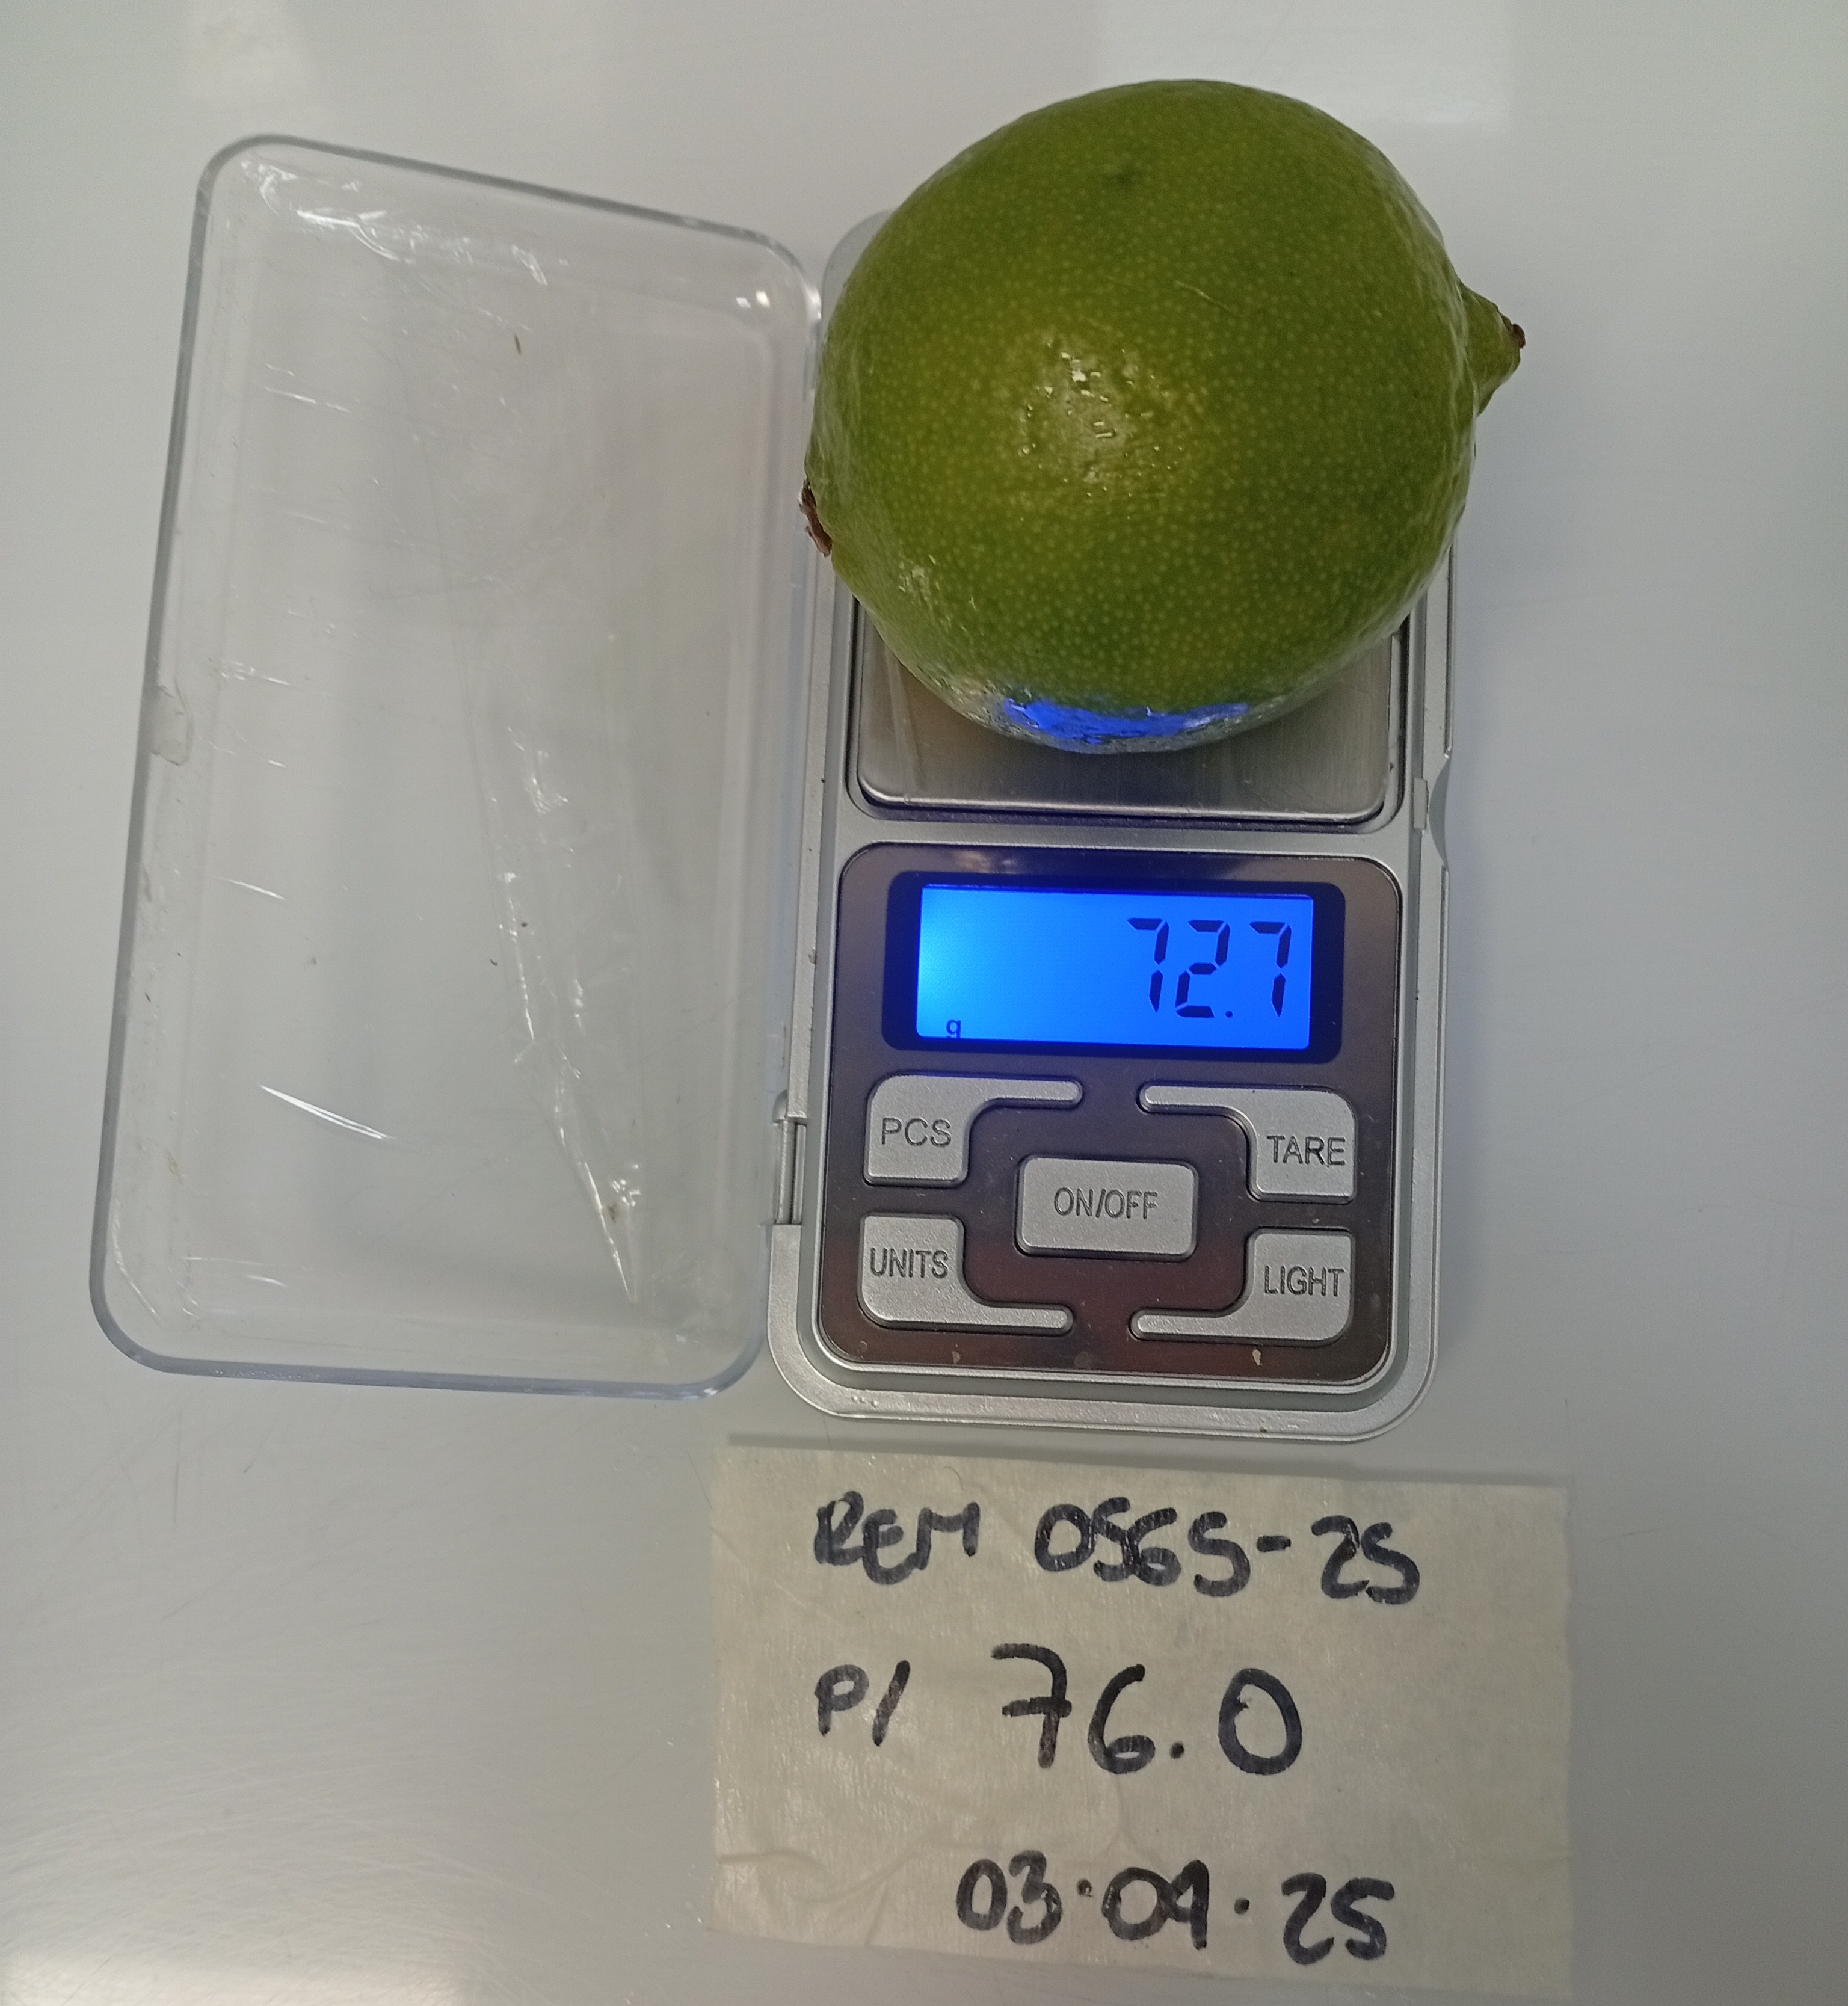 72.7
g
PCS
TARE
ON/OFF
UNITS
LIGHT
REM 0565-25
P/ 76.0
03.09.25